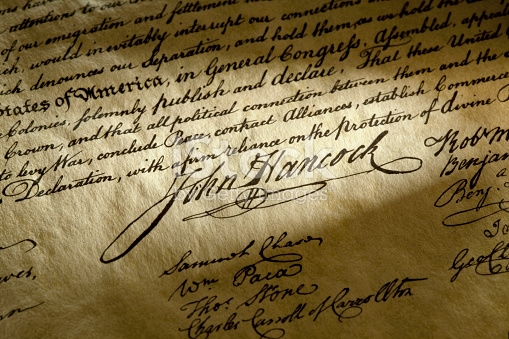 ions have
attentions to our
of our emigration and settlement here
which, would inevitably interrupt our connections and
which denounces our Separation, and hold them, as we hold the
States of America, in General Congress, Assembled, appeali
e Colonies, solemnly publish and declare, That these United
Crown, and that all political connection between them and the
to levy War, conclude Peace, contract Alliances, establish Commerce
Declaration, with a firm reliance on the Protection of divine
John Hancock
Rob M
Benjam
Benj.
Samuel Chase
Wm Paca
Thos Stone
Charles Carroll of Carrollton
Geo